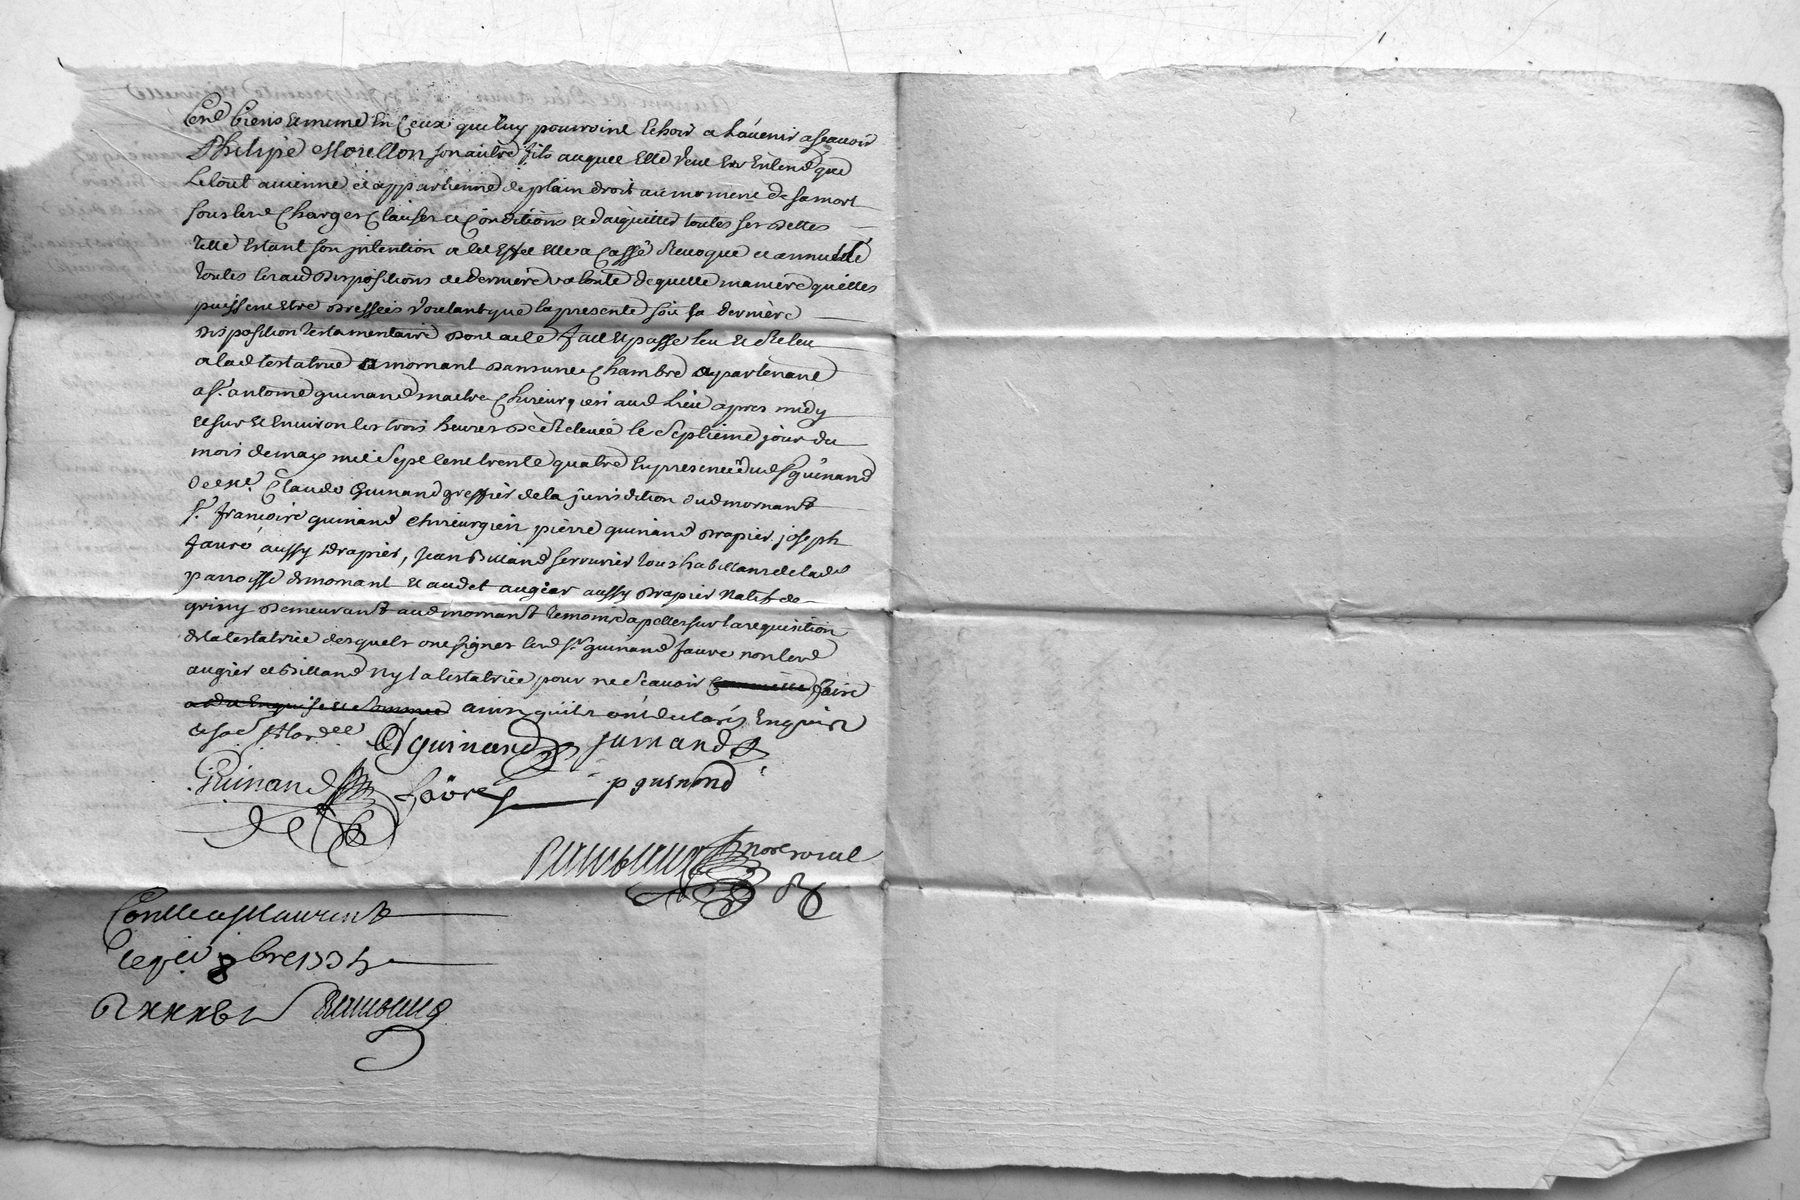 sesd biens et meme en ceux qui luy pourroint echoir a L'avenir a scavoir
Philipe Morellon son autre fils auquel elle veut et Entend que
Le tout avienne et appartienne de plain droit au moment de sa mort
sous lesd Charges Clauses et Conditions et d'acquitter toutes ses dettes
telle estant son jntention a cet effet elle a Cassé Revoqué et annullé
toutes les aud dispositions de derniere volonté de quelle maniere quelles
puissent etre dressées voulant que la presente soit sa derniere
disposition testamentaire dont acte fait et passé leu et Releu
a lad testatrice a mornant dans une Chambre apartenant
a sr. antoine guinand maitre Chirurgien aud Lieu apres midy
et sur et Environ les trois heures de Relevée le septieme jour du
mois de may mil sept cent trente quatre En presence dud sr guinand
de me. Claude Guinand greffier de la jurisdition dud mornant
sr. francoise guinand chirurgien pierre guinand drapier joseph
faure aussy drapier, jean Billand serrurier tous habittans de lad
parroisse de mornant et audet augier aussy drapier Natif de
griny demeurant aud mornant temoins apellés sur la requisition
de la testatrice desquels ont signes lesd sr. guinand faure non lesd
augier et Billand ny la testatrice pour ne scavoir faire
ainsy quils ont declarés Enquis
et so
guinand guinand
Guinand faüre p guinand
not royal
Conlle a st laurent
le 8bre 1734